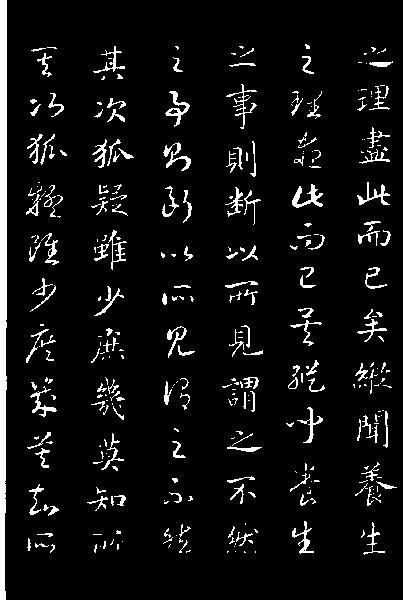 之理盡此而已矣縱聞養生
之理盡此而已矣縱聞養生
之事則斷以所見謂之不然
之事則斷以所見謂之不然
其次狐疑雖少庶幾莫知所
其次狐疑雖少庶幾莫知所